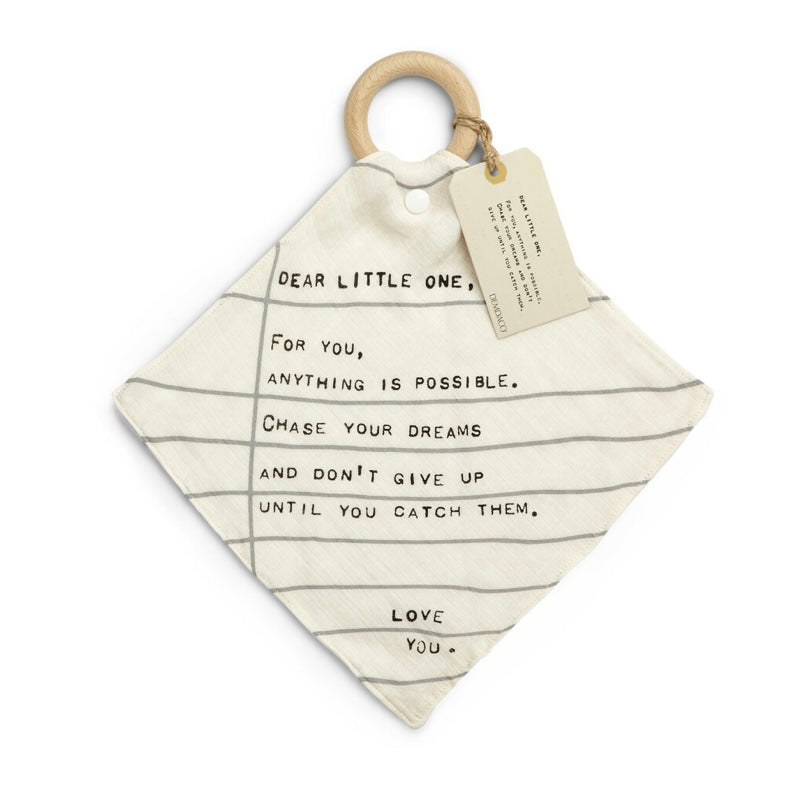 DEAR LITTLE ONE,
FOR YOU,
ANYTHING IS POSSIBLE.
CHASE YOUR DREAMS
AND DON'T GIVE UP
UNTIL YOU CATCH THEM.
LOVE
YOU.
DEAR LITTLE ONE,
FOR YOU, ANYTHING IS POSSIBLE.
CHASE YOUR DREAMS AND DON'T
GIVE UP UNTIL YOU CATCH THEM.
DEMDACO